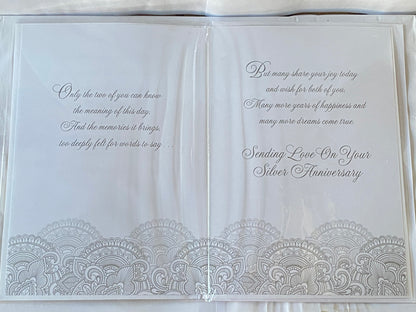 Only the two of you can know
the meaning of this day,
And the memories it brings,
too deeply felt for words to say . . .
But many share your joy today
and wish for both of you,
Many more years of happiness and
many more dreams come true.
Sending Love On Your
Silver Anniversary